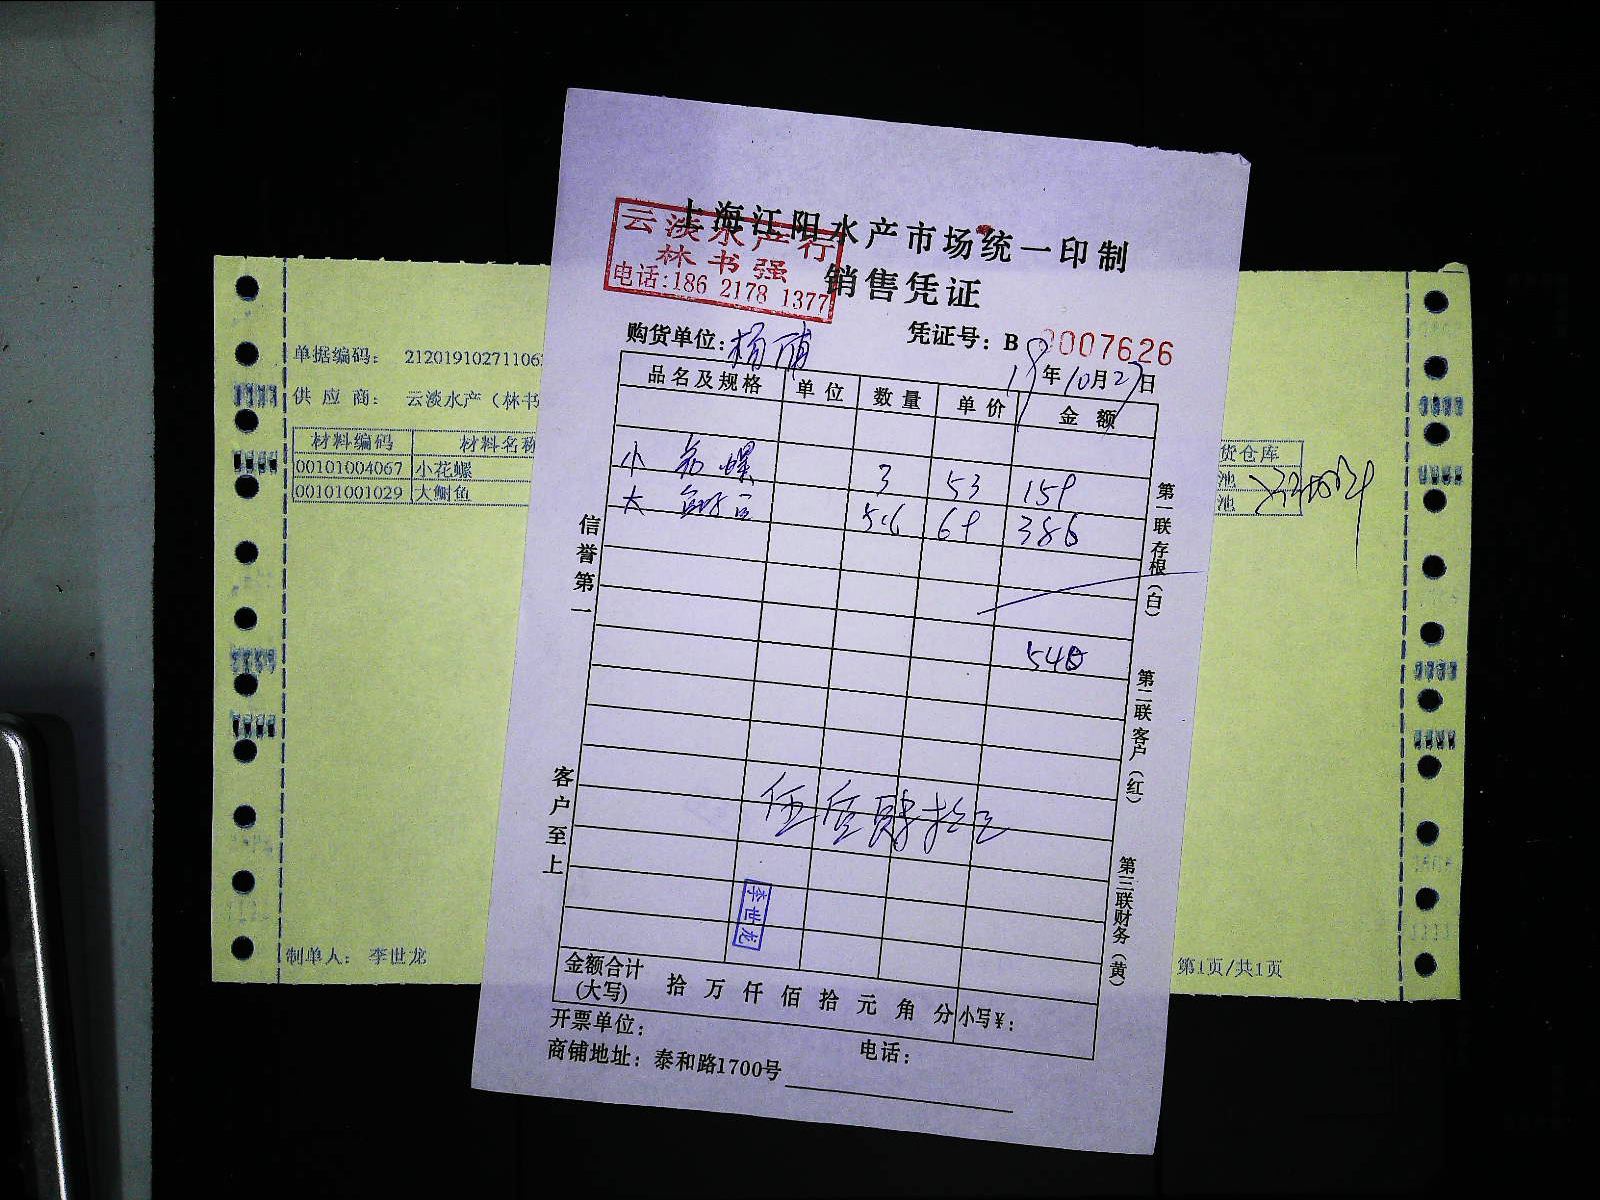 上海江阳水产市场统一印制
云淡水产行
林书强
电话:186 2178 1377
销售凭证
购货单位:杨浦
凭证号: B 0007626
19年10月27日
品名及规格 单位 数量 单价 金额
小 花螺 3 53 159
大 鲍 5.6 69 386
545
伍佰肆拾
李世龙
金额合计(大写) 拾 万 仟 佰 拾 元 角 分 小写¥:
开票单位: 电话:
商铺地址: 泰和路1700号
信誉第一
客户至上
第一联 存根(白)
第二联 客户(红)
第三联 财务(黄)
单据编码: 21201910271106
供应商: 云淡水产(林书
材料编码 材料名称
00101004067 小花螺
00101001029 大鲥鱼
货仓库
池
池
制单人: 李世龙
第1页/共1页